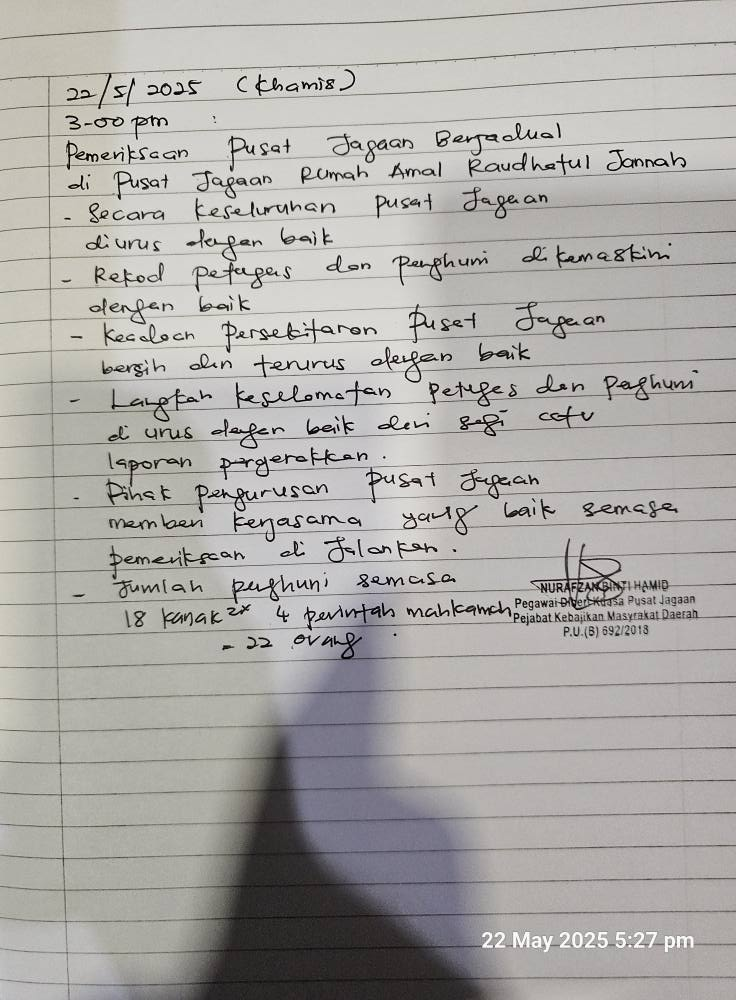 22/5/2025 (Khamis)
3-00 pm :
Pemeriksaan Pusat Jagaan Berjadual
di Pusat Jagaan Rumah Amal Raudhatul Jannah
- Secara keseluruhan pusat Jagaan
diurus dengan baik
- Rekod petugas dan penghuni dikemaskini
dengan baik
- Keadaan Persekitaran Pusat Jagaan
bersih dan terurus dengan baik
- Langkah keselamatan petugas dan penghuni
di urus dengan baik dari segi
laporan pergerakkan.
- Pihak pengurusan pusat Jagaan
memberi kerjasama yang baik semasa
pemeriksaan di Jalankan.
- Jumlah penghuni semasa
18 kanak2x 4 perintah mahkamah
- 22 orang.
NURAFZAN BINTI HAMID
Pegawai Diberi Kuasa Pusat Jagaan
Pejabat Kebajikan Masyrakat Daerah
P.U.(B) 692/2018
22 May 2025 5:27 pm